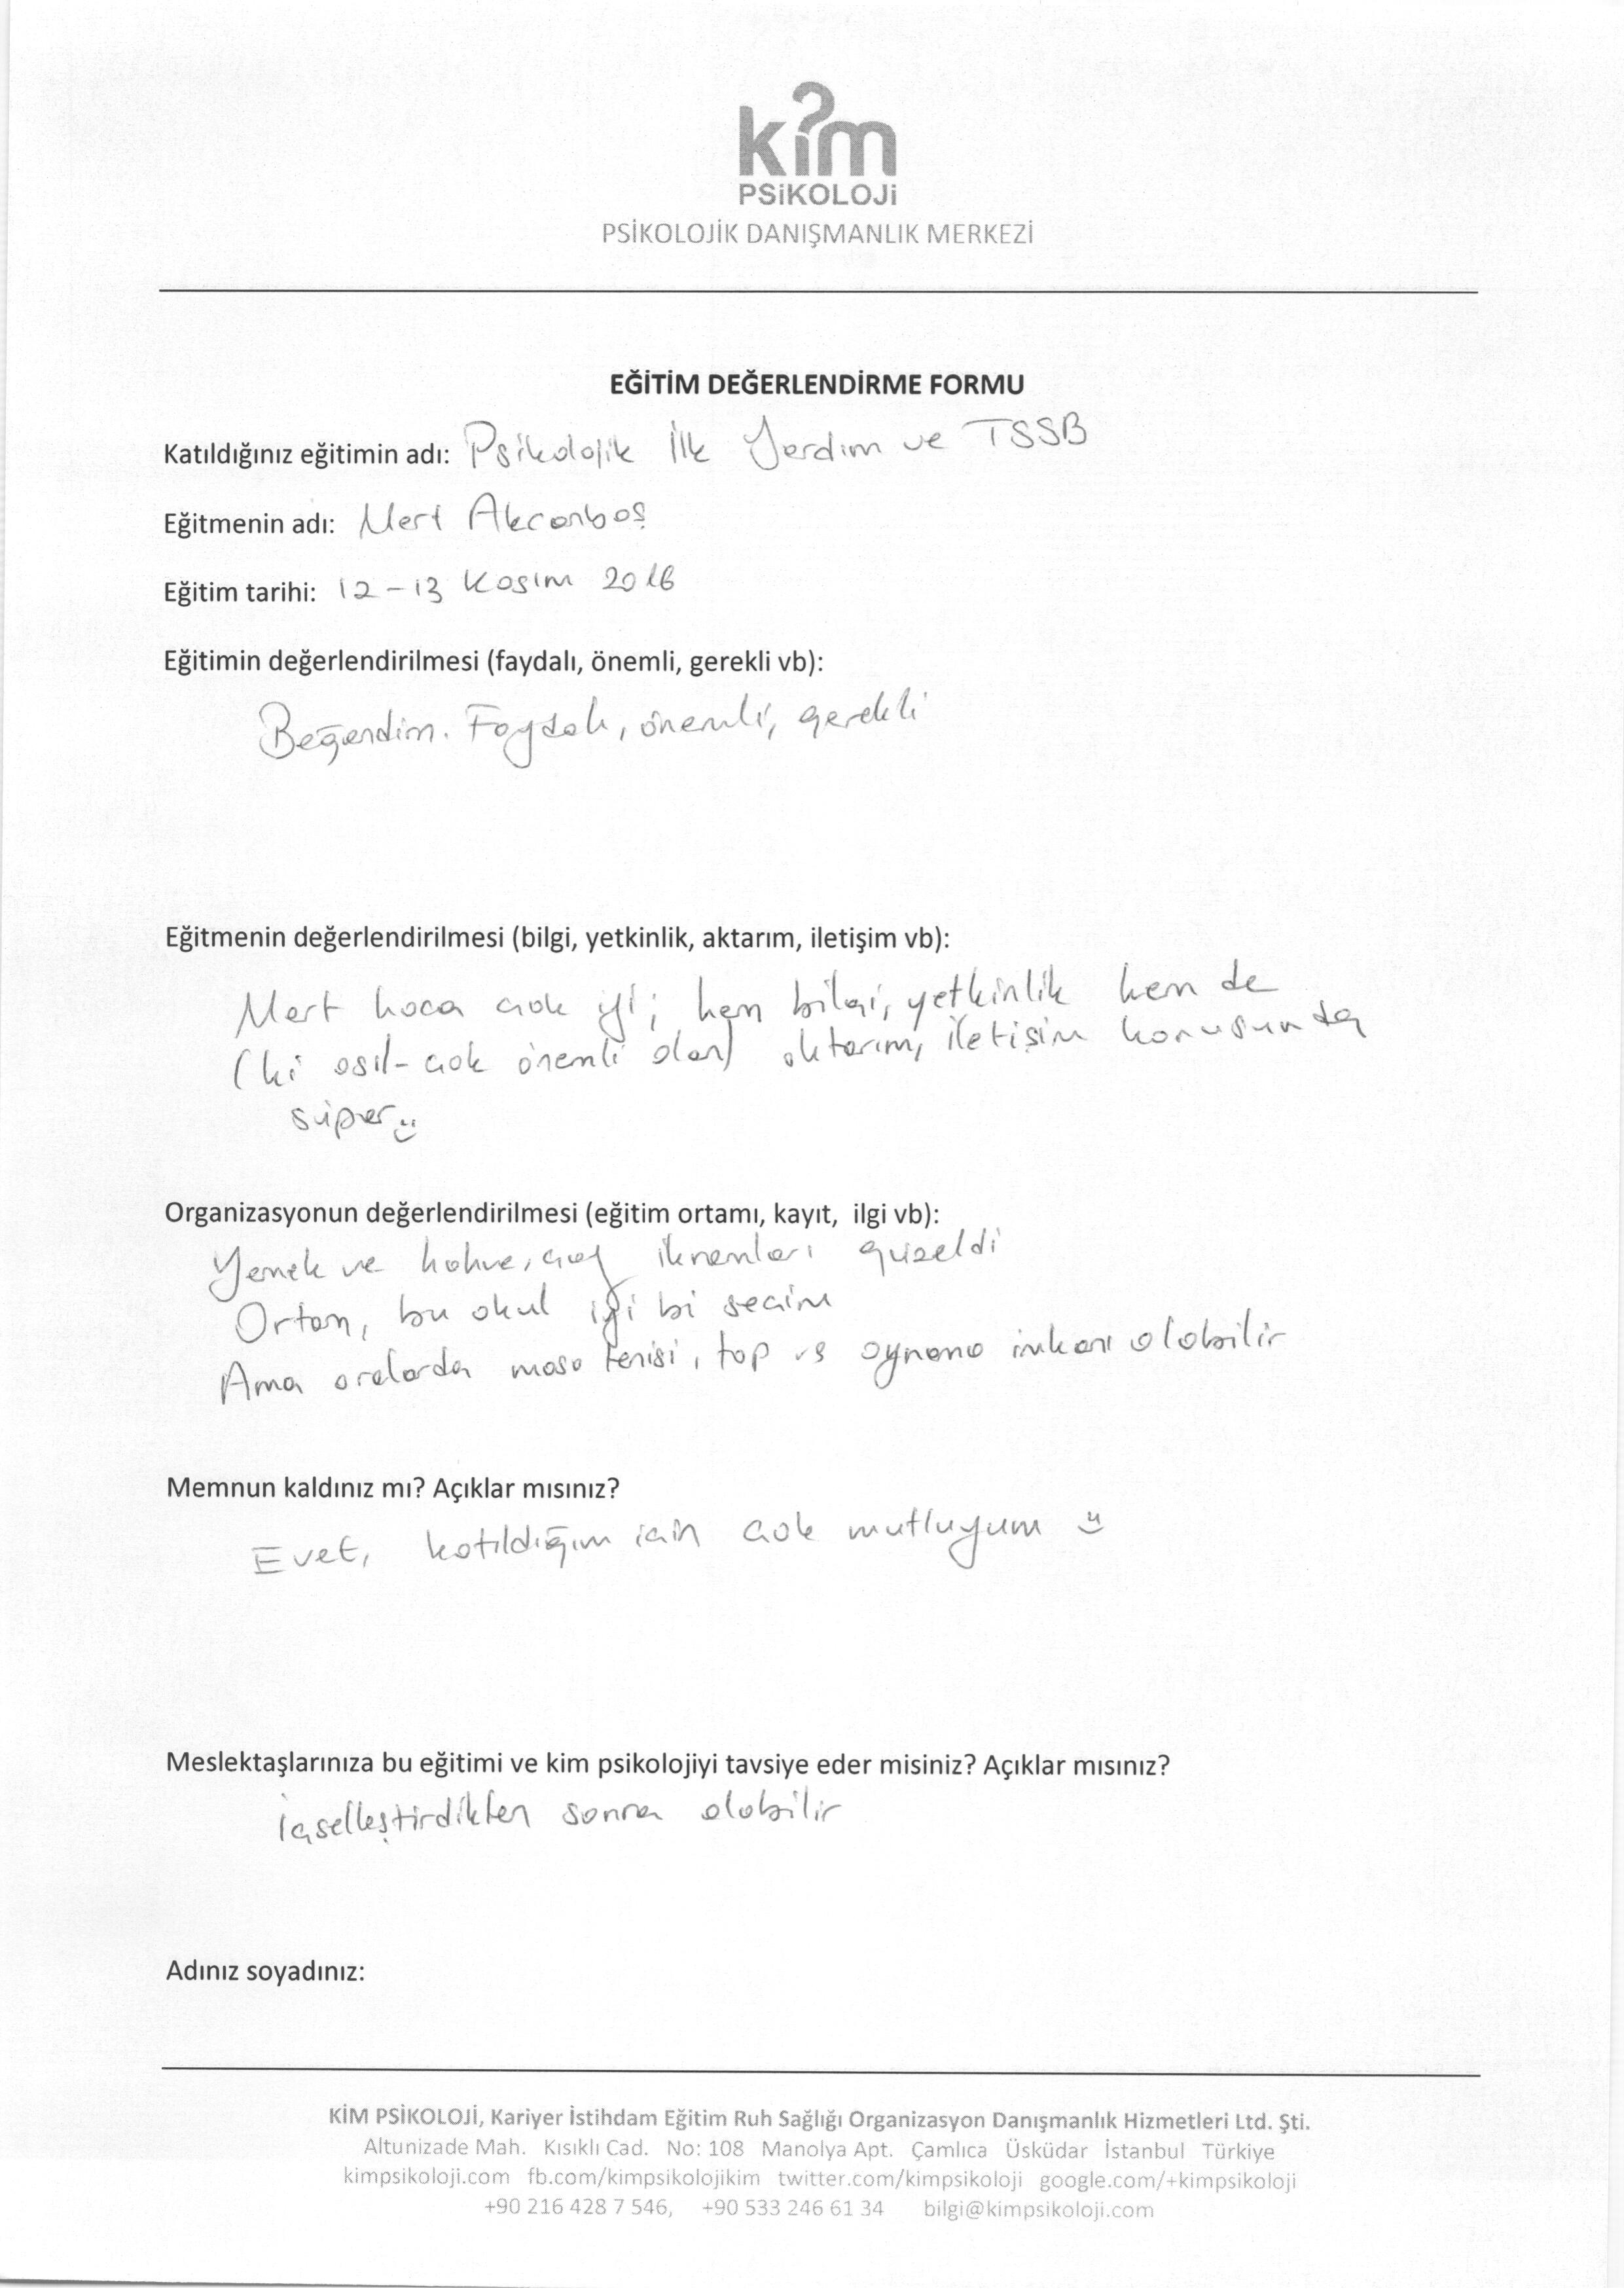 kim
PSİKOLOJİ
PSİKOLOJİK DANIŞMANLIK MERKEZİ
EĞİTİM DEĞERLENDİRME FORMU
Katıldığınız eğitimin adı: Psikolojik İlk Yardım ve TSSB
Eğitmenin adı: Mert Akcanbaş
Eğitim tarihi: 12-13 Kasım 2016
Eğitimin değerlendirilmesi (faydalı, önemli, gerekli vb):
Beğendim. Faydalı, önemli, gerekli
Eğitmenin değerlendirilmesi (bilgi, yetkinlik, aktarım, iletişim vb):
Mert hoca çok iyi; hem bilgi, yetkinlik hem de
(ki asıl-çok önemli olan) aktarım, iletişim konusunda
süper
Organizasyonun değerlendirilmesi (eğitim ortamı, kayıt, ilgi vb):
Yemek ve kahve, çay ikramları güzeldi
Ortam, bu okul iyi bi seçim
Ama aralarda masa tenisi, top vs oynama imkanı olabilir
Memnun kaldınız mı? Açıklar mısınız?
Evet, katıldığım için çok mutluyum
Meslektaşlarınıza bu eğitimi ve kim psikolojiyi tavsiye eder misiniz? Açıklar mısınız?
İçselleştirdikten sonra olabilir
Adınız soyadınız:
KİM PSİKOLOJİ, Kariyer İstihdam Eğitim Ruh Sağlığı Organizasyon Danışmanlık Hizmetleri Ltd. Şti.
Altunizade Mah. Kısıklı Cad. No: 108 Manolya Apt. Çamlıca Üsküdar İstanbul Türkiye
kimpsikoloji.com fb.com/kimpsikolojikim twitter.com/kimpsikoloji google.com/+kimpsikoloji
+90 216 428 7 546, +90 533 246 61 34 bilgi@kimpsikoloji.com